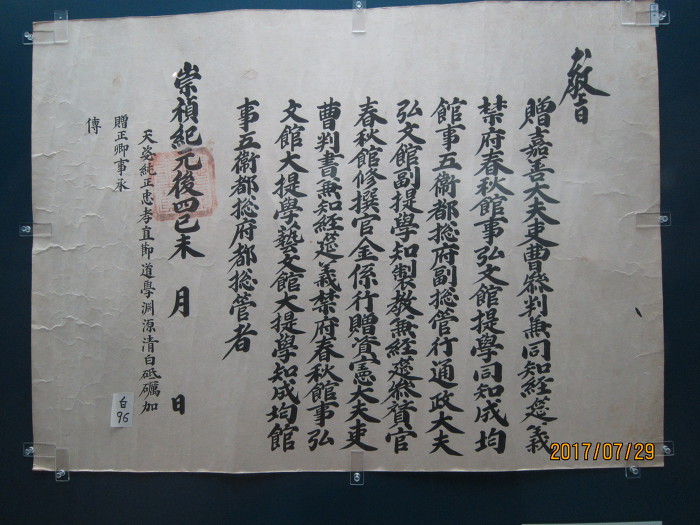 敎旨
贈嘉善大夫吏曹叅判兼同知經筵義
禁府春秋館事弘文館提學同知成均
館事五衛都摠府副摠管行通政大夫
弘文館副提學知製敎兼經筵叅贊官
春秋館修撰官金係行贈資憲大夫吏
曹判書兼知經筵義禁府春秋館事弘
文館大提學藝文館大提學知成均館
事五衛都摠府都摠管者
崇禎紀元後四己未 月 日
天姿純正忠孝直節道學淵源清白砥礪加
贈正卿事承
傳
白
96
2017/07/29